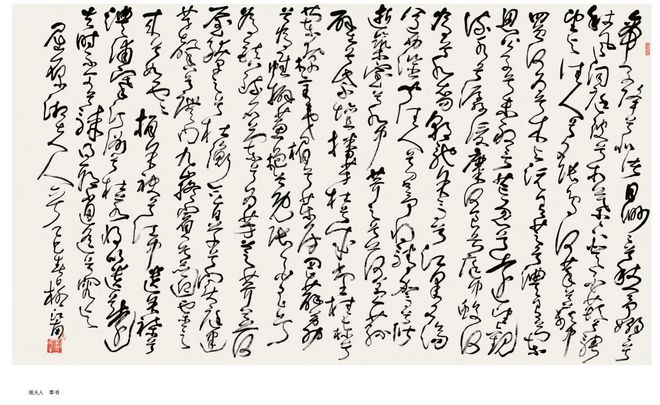 帝子降兮北渚目眇眇兮愁予嫋嫋兮
秋風洞庭波兮木葉下登白薠兮騁
望與佳期兮夕張鳥何萃兮蘋中
罾何為兮木上沅有茝兮醴有蘭
思公子兮未敢言荒忽兮遠望觀
流水兮潺湲麋何食兮庭中蛟何
為兮水裔朝馳余馬兮江皋夕濟
兮西澨聞佳人兮召予將騰駕兮偕
逝築室兮水中葺之兮荷蓋蓀
壁兮紫壇播芳椒兮成堂桂棟兮
蘭橑辛夷楣兮藥房罔薜荔
兮為帷擗蕙櫋兮既張白玉兮
為鎮疏石蘭兮為芳芷葺兮荷
屋繚之兮杜衡合百草兮實庭建
芳馨兮廡門九嶷繽兮並迎靈之
來兮如雲捐余袂兮江中遺余褋兮
澧浦搴汀洲兮杜若將以遺兮遠
者時不可兮驟得聊逍遙兮容與
屈原湘夫人
湘夫人 草书